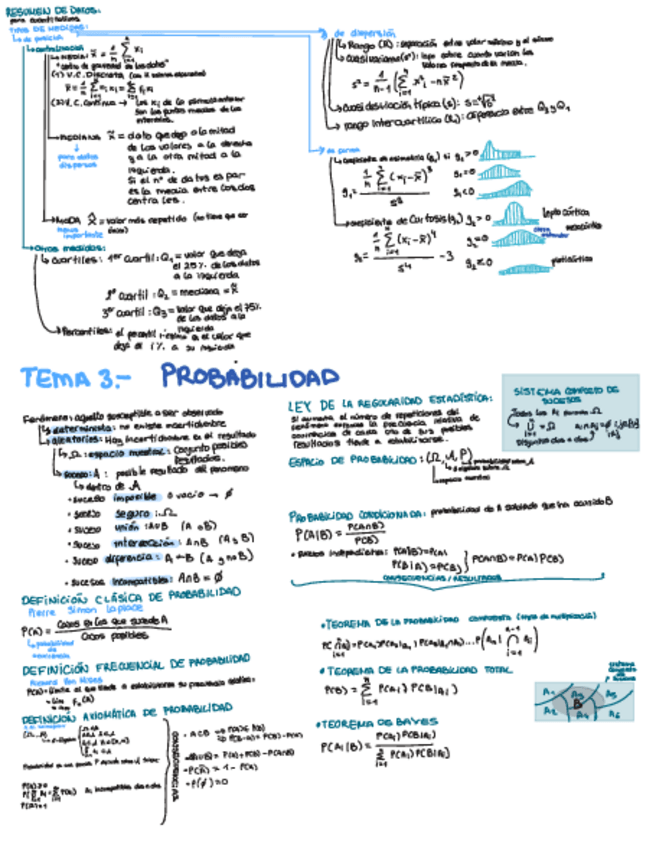 RESUMEN DE DATOS:
para cuantitativos
TIPOS DE MEDIDAS:
↳ de posición
↳ centralización
↳ MEDIA: x̄ = 1/n Σ xᵢ
"centro de gravedad de los datos"
(1) V.C. Discreta
x̄ = 1/n Σ nᵢxᵢ = Σ fᵢxᵢ
(2) V.C. Continua → los xᵢ de la fórmula anterior
son los puntos medios de los
intervalos.
↳ MEDIANA x̃ = dato que deja a la mitad
de los valores a la derecha
y a la otra mitad a la
izquierda.
Si el nº de datos es par
es la media entre los dos
centrales.
para datos
dispersos
↳ MODA x̂ = valor más repetido (no tiene que ser
único)
menos
importante
↳ Otras medidas:
↳ Cuartiles: 1er cuartil: Q₁ = valor que deja
el 25% de los datos
a la izquierda
2º cuartil: Q₂ = mediana = x̃
3er cuartil: Q₃ = valor que deja el 75%
de los datos a la
izquierda
↳ Percentiles: el percentil i-ésimo es el valor que
deja el i% a su izquierda
de dispersión
↳ Rango (R): separación entre valor máximo y el mínimo
↳ Cuasivarianza (s²): info sobre cuanto varían los
valores respecto de la media.
s² = 1/(n-1) (Σ x²ᵢ - nx̄²)
↳ Cuasidesviación típica (s): s = √s²
↳ rango intercuartílico (Rᵢ): diferencia entre Q₃ y Q₁
de forma
↳ coeficiente de asimetría (g₁) si g₁>0
g₁ = 1/n Σ (xᵢ - x̄)³ / s³
g₁=0
g₁<0
↳ coeficiente de Curtosis (g₂) g₂>0 leptocúrtica
g₂ = 1/n Σ (xᵢ - x̄)⁴ / s⁴ - 3
g₂=0 mesocúrtica
g₂<0 platicúrtica
TEMA 3.- PROBABILIDAD
Fenómeno: aquello susceptible a ser observado
↳ determinista: no existe incertidumbre
↳ aleatorios: Hay incertidumbre en el resultado
↳ Ω: espacio muestral: Conjunto posibles
resultados.
↳ suceso: A: posible resultado del fenómeno
↳ dentro de A
• suceso imposible o vacío → ∅
• suceso seguro: Ω
• suceso unión: A∪B (A o B)
• suceso intersección: A∩B (A y B)
• suceso diferencia: A-B (A y no B)
• sucesos incompatibles: A∩B = ∅
DEFINICIÓN CLÁSICA DE PROBABILIDAD
Pierre Simon Laplace
P(A) = Casos en los que sucede A / Casos posibles
↳ probabilidad
de
ocurrencia
DEFINICIÓN FRECUENCIAL DE PROBABILIDAD
Richard Von Mises
P(A) = límite al que tiende a estabilizarse su frecuencia relativa:
= lim fₙ(A)
DEFINICIÓN AXIOMÁTICA DE PROBABILIDAD
CONSECUENCIAS
• A⊂B → P(A) ≤ P(B)
P(B-A) = P(B) - P(A)
• P(A∪B) = P(A) + P(B) - P(A∩B)
• P(Ā) = 1 - P(A)
• P(∅) = 0
LEY DE LA REGULARIDAD ESTADÍSTICA:
Si aumenta el número de repeticiones del
fenómeno entonces la frecuencia relativa de
ocurrencias de cada uno de sus posibles
resultados tiende a estabilizarse.
SISTEMA COMPLETO DE
SUCESOS
Todos los Aᵢ forman Ω
Disjuntos dos a dos
ESPACIO DE PROBABILIDAD: (Ω, A, P)
espacio muestral
PROBABILIDAD CONDICIONADA: probabilidad de A sabiendo que ha ocurrido B
P(A|B) = P(A∩B) / P(B)
• Sucesos independientes: P(A|B) = P(A)
P(B|A) = P(B)
P(A∩B) = P(A) P(B)
CONSECUENCIAS / RESULTADOS
• TEOREMA DE LA PROBABILIDAD COMPUESTA
• TEOREMA DE LA PROBABILIDAD TOTAL
P(B) = Σ P(Aᵢ) P(B|Aᵢ)
A₁ A₃ A₅
B
A₂ A₄ A₆
• TEOREMA DE BAYES
P(Aᵢ|B) = P(Aᵢ) P(B|Aᵢ) / Σ P(Aᵢ) P(B|Aᵢ)